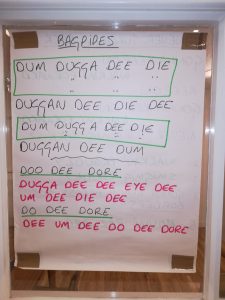 BAGPIPES
DUM DUGGA DEE DIE
" " " "
DUGGAN DEE DIE DEE
DUM DUGGA DEE DIE
DUGGAN DEE DUM
DOO DEE DORE
DUGGA DEE DEE EYE DEE
UM DEE DIE DEE
DO DEE DORE
DEE UM DEE DO DEE DORE